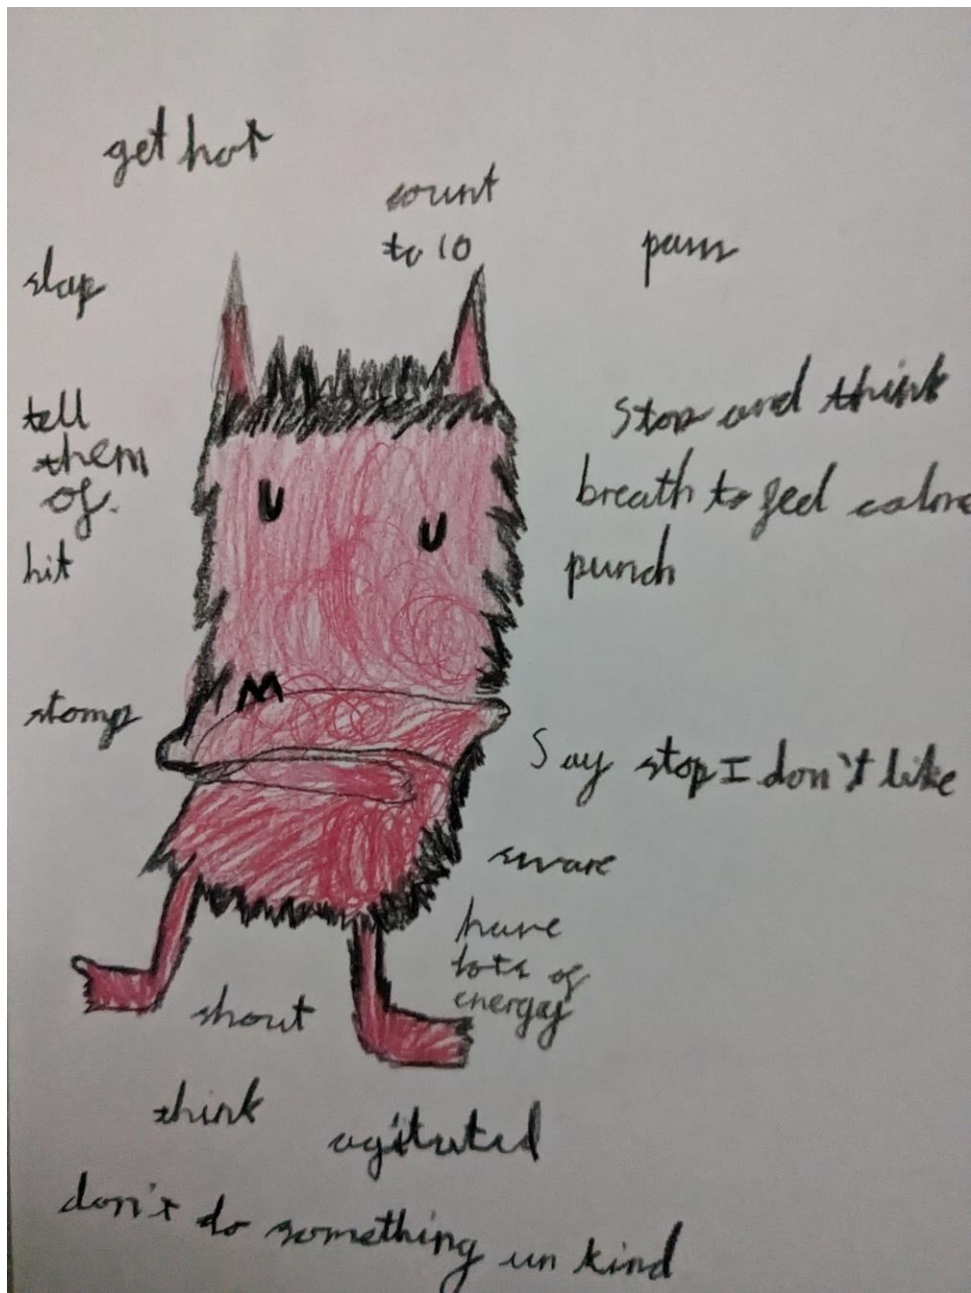 get hot
count
to 10
slap
tell
them
of.
hit
Stop and think
breath to feel calm
punch
stomp
Say stop I don't like
sware
have
lots of
energy
shout
think
agitated
don't do something un kind